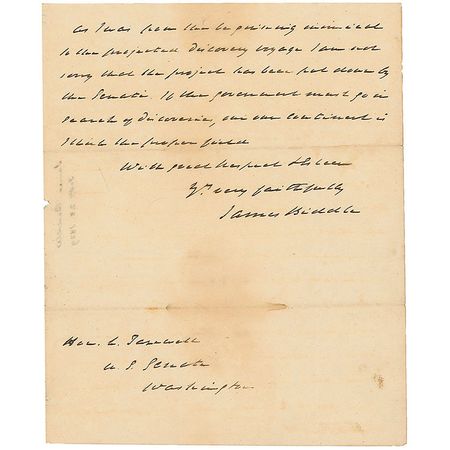 As I was from the beginning inimical
to the projected Discovery voyage I am not
sorry that the project has been put down by
the Senate. If the government must go in
search of Discoveries, our own continent is
I think the proper field
With great respect & esteem
Yr very faithfully
James Biddle
Hon.
U. S. Senate
Washington
James Biddle
1829